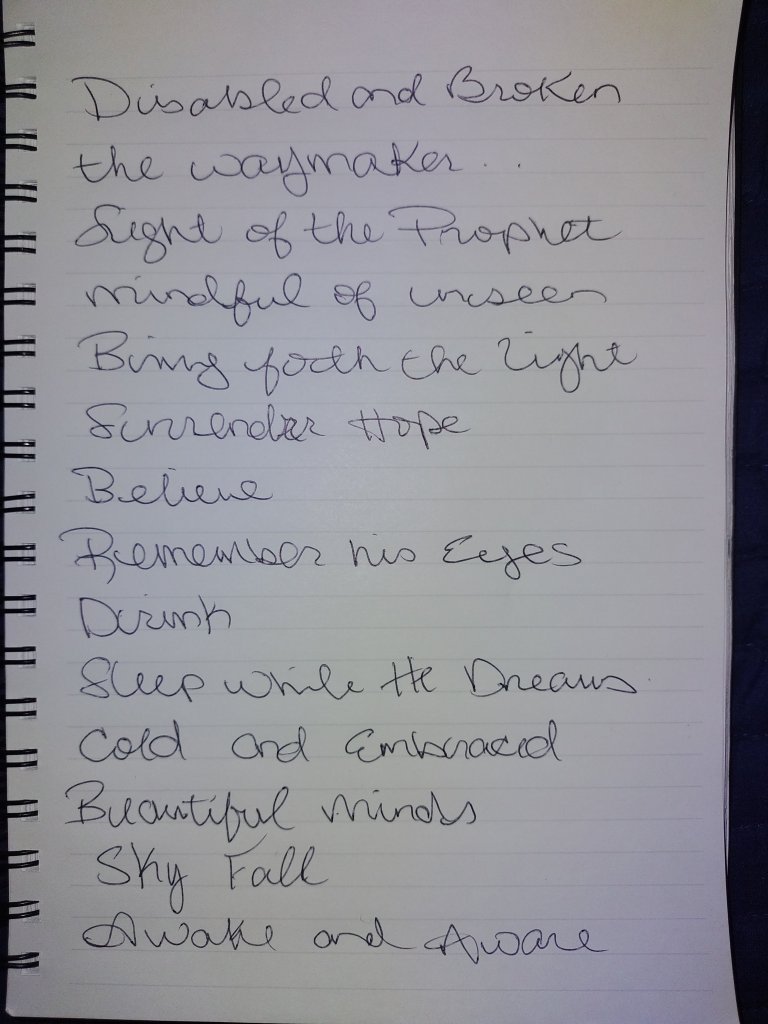 Disabled and Broken
the waymaker . .
Sight of the Prophet
mindful of unseen
Bring forth the light
Surrender Hope
Believe
Remember his Eyes
Drink
Sleep while He Dreams
Cold and Embraced
Beautiful minds
Sky Fall
Awake and Aware